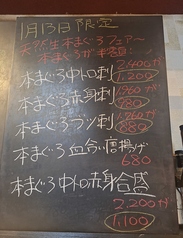 1月13日限定
天然生本まぐろフェアー
本まぐろが半額!
本まぐろ中トロ刺 2,400が 1,200
本まぐろ赤身刺 1,560が 780
本まぐろブツ刺 1,760が 880
本まぐろ血合い唐揚げ 680
本まぐろ中トロ赤身合盛
2,200が
1,100